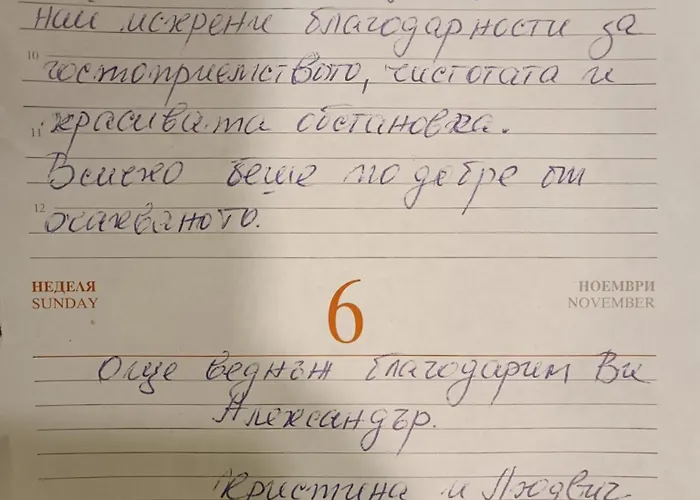 най искрени благодарности за
10 гостоприемството, чистотата и
11 красивата обстановка.
Всичко беше по добре от
12 очакваното.
НЕДЕЛЯ 6 НОЕМВРИ
SUNDAY NOVEMBER
Още веднъж благодарим Ви
Александър.
Кристина и Людвиг